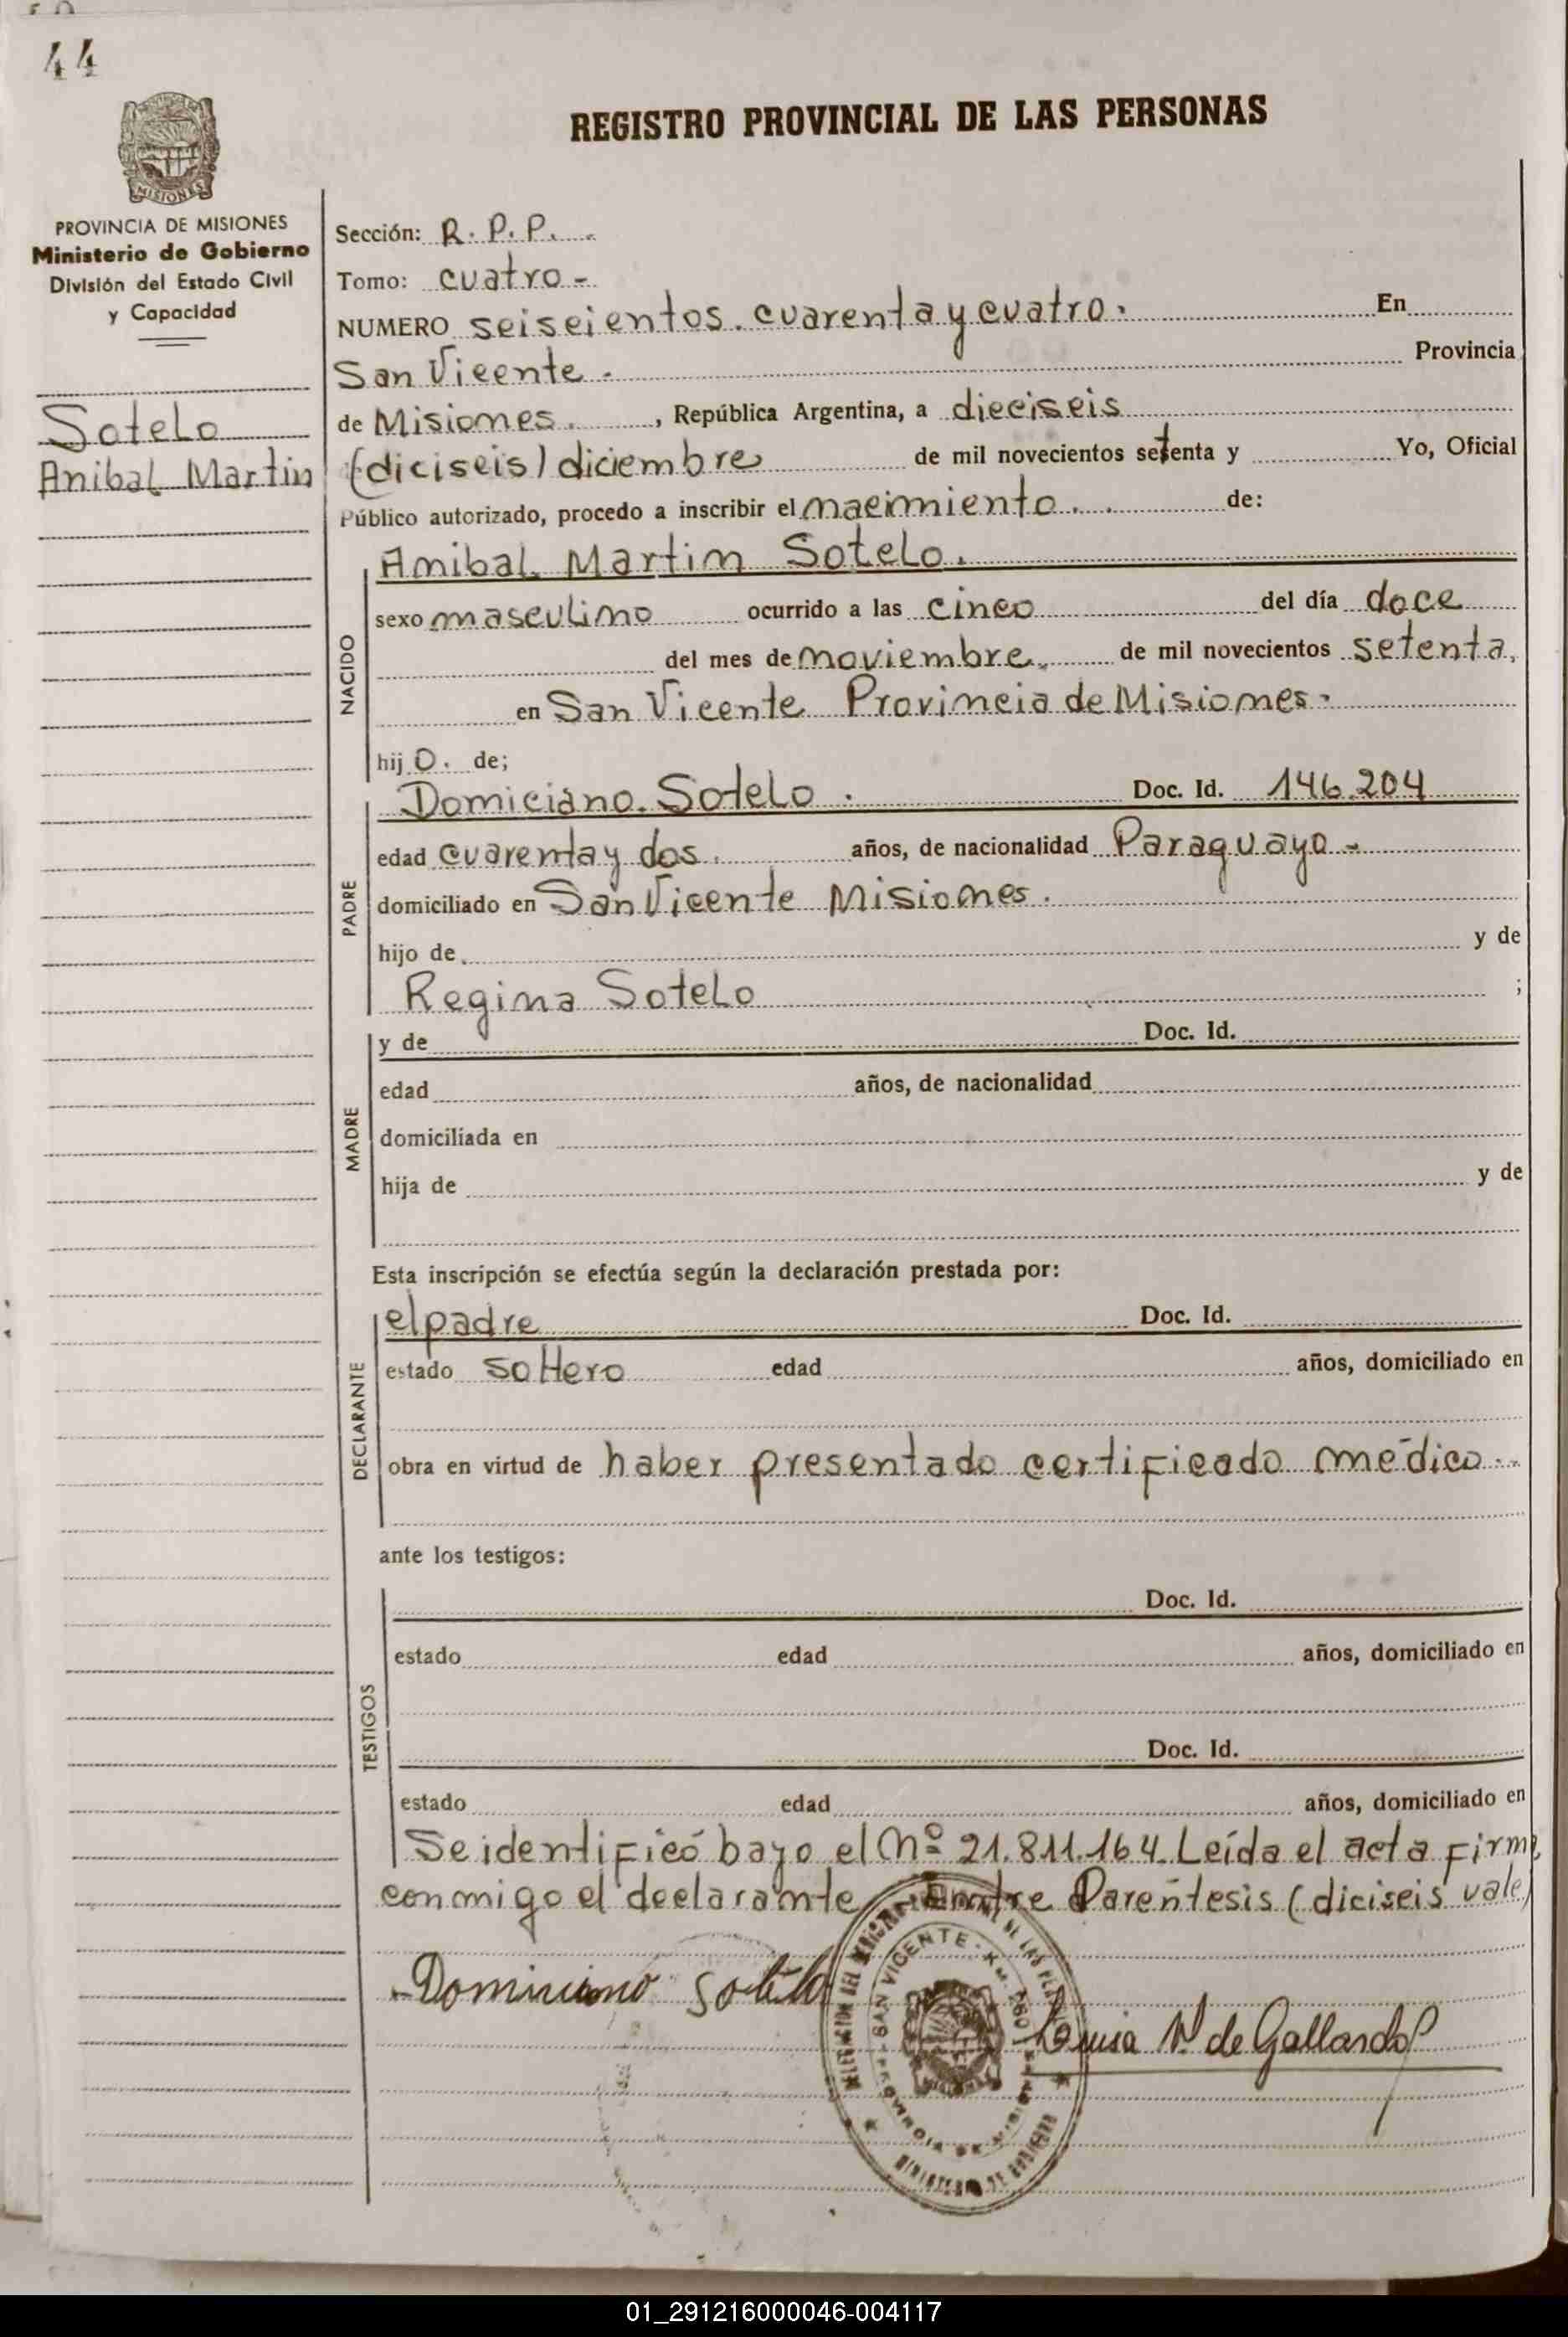 44
REGISTRO PROVINCIAL DE LAS PERSONAS
MISIONES
PROVINCIA DE MISIONES
Ministerio de Gobierno
División del Estado Civil
y Capacidad
Sotelo
Anibal Martin
Sección: R. P. P.
Tomo: cuatro -
NUMERO seiscientos cuarenta y cuatro. En
San Vicente - Provincia
de Misiones. , República Argentina, a dieciseis
(diciseis) diciembre de mil novecientos setenta y Yo, Oficial
Público autorizado, procedo a inscribir el nacimiento. de:
NACIDO
Anibal Martin Sotelo.
sexo masculino ocurrido a las cinco del día doce
del mes de noviembre de mil novecientos setenta,
en San Vicente Provincia de Misiones -
hijo. de;
PADRE
Domiciano Sotelo. Doc. Id. 146.204
edad cuarenta y dos. años, de nacionalidad Paraguayo -
domiciliado en San Vicente Misiones.
hijo de y de
Regina Sotelo ;
MADRE
y de Doc. Id.
edad años, de nacionalidad
domiciliada en
hija de y de
Esta inscripción se efectúa según la declaración prestada por:
DECLARANTE
el padre Doc. Id.
estado soltero edad años, domiciliado en
obra en virtud de haber presentado certificado médico.
ante los testigos:
TESTIGOS
Doc. Id.
estado edad años, domiciliado en
Doc. Id.
estado edad años, domiciliado en
Se identificó bayo el Nº 21.811.164. Leída el acta firma
conmigo el declarante Entre Parentesis (diciseis vale)
Domiciano Sotelo
SAN VICENTE - Km.
MINISTERIO DE GOBIERNO
Luisa N. de Gallardo
01_291216000046-004117